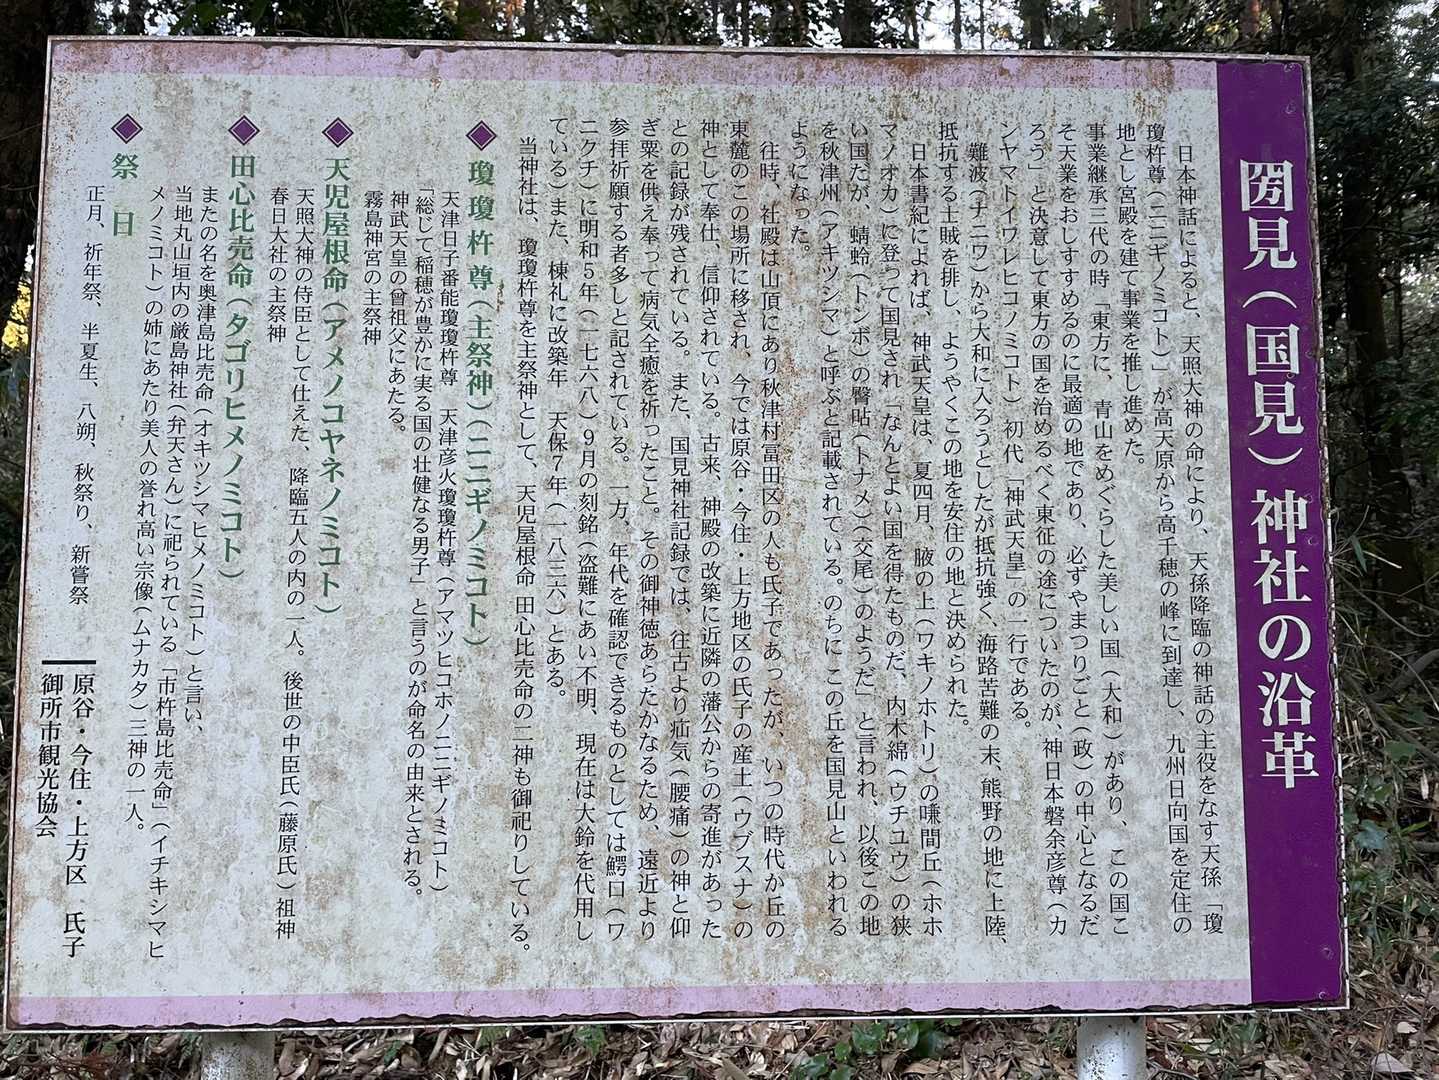 圀見（国見）神社の沿革
日本神話によると、天照大神の命により、天孫降臨の神話の主役をなす天孫「瓊
瓊杵尊（ニニギノミコト）」が高天原から高千穂の峰に到達し、九州日向国を定住の
地とし宮殿を建て事業を推し進めた。
事業継承三代の時「東方に、青山をめぐらした美しい国（大和）があり、この国こ
そ天業をおしすすめるのに最適の地であり、必ずやまつりごと（政）の中心となるだ
ろう」と決意して東方の国を治めるべく東征の途についたのが、神日本磐余彦尊（カ
ンヤマトイワレヒコノミコト）初代「神武天皇」の一行である。
難波（ナニワ）から大和に入ろうとしたが抵抗強く、海路苦難の末、熊野の地に上陸、
抵抗する土賊を排し、ようやくこの地を安住の地と決められた。
日本書紀によれば、神武天皇は、夏四月、腋の上（ワキノホトリ）の嗛間丘（ホホ
マノオカ）に登って国見され「なんとよい国を得たものだ、内木綿（ウチユウ）の狭
い国だが、蜻蛉（トンボ）の臀呫（トナメ）（交尾）のようだ」と言われ、以後この地
を秋津州（アキツシマ）と呼ぶと記載されている。のちに この丘を国見山といわれる
ようになった。
往時、社殿は山頂にあり秋津村冨田区の人も氏子であったが、いつの時代か丘の
東麓のこの場所に移され、今では原谷・今住・上方地区の氏子の産土（ウブスナ）の
神として奉仕、信仰されている。古来、神殿の改築に近隣の藩公からの寄進があった
との記録が残されている。また、国見神社記録では、往古より疝気（腰痛）の神と仰
ぎ粟を供え奉って病気全癒を祈ったこと。その御神徳あらたかなるため、遠近より
参拝祈願する者多しと記されている。一方、年代を確認できるものとしては鰐口（ワ
ニクチ）に明和５年（一七六八）９月の刻銘（盗難にあい不明、現在は大鈴を代用し
ている）また、棟礼に改築年　天保７年（一八三六）とある。
当神社は、瓊瓊杵尊を主祭神として、天児屋根命 田心比売命の二神も御祀りしている。
◈ 瓊瓊杵尊（主祭神）（ニニギノミコト）
天津日子番能瓊瓊杵尊　天津彦火瓊瓊杵尊（アマツヒコホノニニギノミコト）
「総じて稲穂が豊かに実る国の壮健なる男子」と言うのが命名の由来とされる。
神武天皇の曾祖父にあたる。
霧島神宮の主祭神
◈ 天児屋根命（アメノコヤネノミコト）
天照大神の侍臣として仕えた、降臨五人の内の一人。後世の中臣氏（藤原氏）祖神
春日大社の主祭神
◈ 田心比売命（タゴリヒメノミコト）
またの名を奥津島比売命（オキツシマヒメノミコト）と言い、
当地丸山垣内の厳島神社（弁天さん）に祀られている「市杵島比売命」（イチキシマヒ
メノミコト）の姉にあたり美人の誉れ高い宗像（ムナカタ）三神の一人。
◈ 祭日
正月、祈年祭、半夏生、八朔、秋祭り、新嘗祭
原谷・今住・上方区　氏子
御所市観光協会